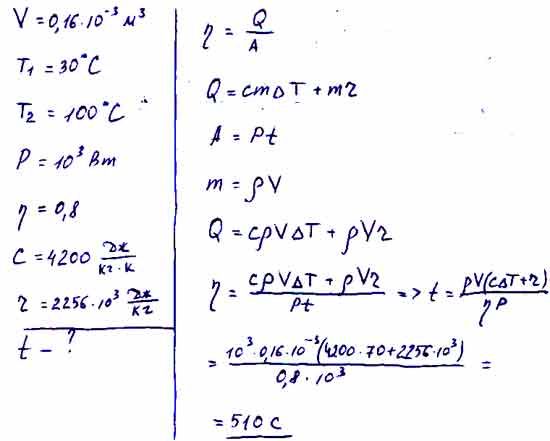 V = 0,16·10⁻³ м³
T₁ = 30°C
T₂ = 100°C
P = 10³ Вт
η = 0,8
C = 4200 Дж/кг·К
r = 2256·10³ Дж/кг
t – ?
η = Q/A
Q = cmΔT + mr
A = Pt
m = ρV
Q = cρVΔT + ρVr
η = (cρVΔT + ρVr)/Pt => t = ρV(cΔT+r)/ηP
= 10³·0,16·10⁻³(4200·70+2256·10³)/0,8·10³ =
= 510 с